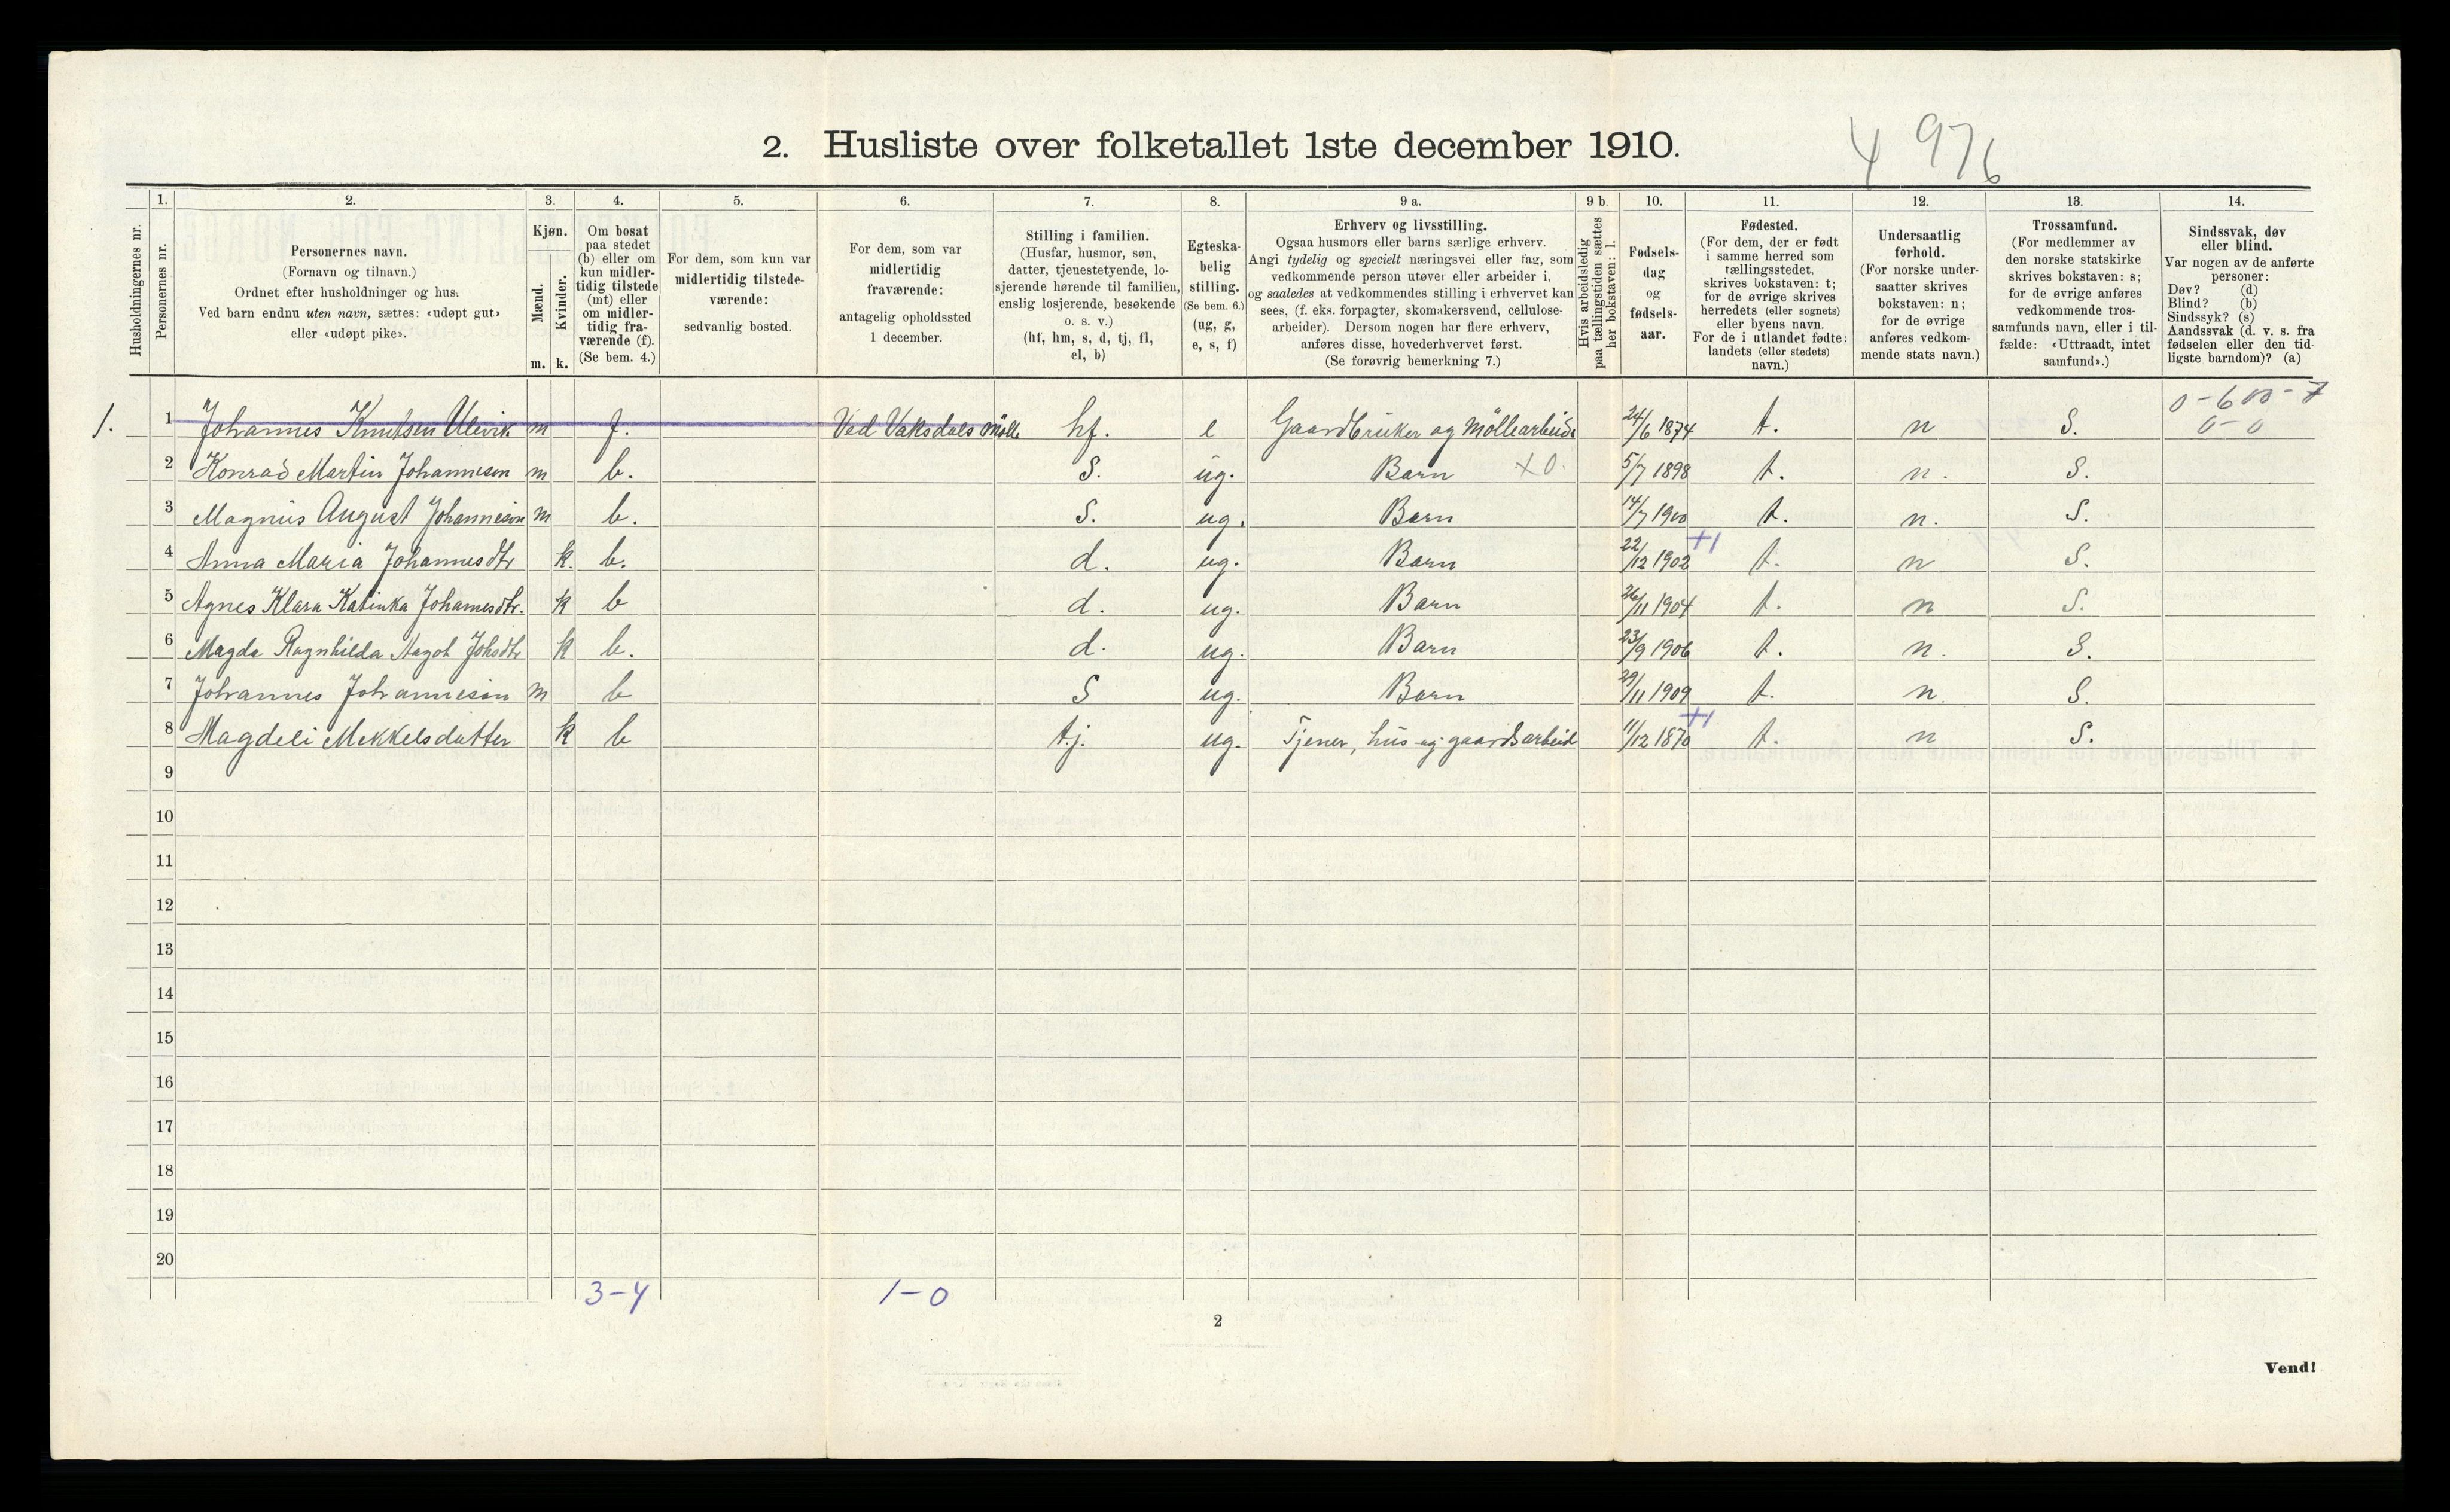 4 976
2. Husliste over folketallet 1ste december 1910.
Husholdningernes nr.
1.
Personernes nr.
2.
Personernes navn.
(Fornavn og tilnavn.)
Ordnet efter husholdninger og hus.
Ved barn endnu uten navn, sættes: «udøpt gut»
eller «udøpt pike».
3.
Kjøn.
Mænd.
Kvinder.
m. k.
4.
Om bosat
paa stedet
(b) eller om
kun midler-
tidig tilstede
(mt) eller
om midler-
tidig fra-
værende (f).
(Se bem. 4.)
5.
For dem, som kun var
midlertidig tilstede-
værende:
sedvanlig bosted.
6.
For dem, som var
midlertidig
fraværende:
antagelig opholdssted
1 december.
7.
Stilling i familien.
(Husfar, husmor, søn,
datter, tjenestetyende, lo-
sjerende hørende til familien,
enslig losjerende, besøkende
o. s. v.)
(hf, hm, s, d, tj, fl,
el, b)
8.
Egteska-
belig
stilling.
(Se bem. 6.)
(ug, g,
e, s, f)
9 a.
Erhverv og livsstilling.
Ogsaa husmors eller barns særlige erhverv.
Angi tydelig og specielt næringsvei eller fag, som
vedkommende person utøver eller arbeider i,
og saaledes at vedkommendes stilling i erhvervet kan
sees, (f. eks. forpagter, skomakersvend, cellulose-
arbeider). Dersom nogen har flere erhverv,
anføres disse, hovederhvervet først.
(Se forøvrig bemerkning 7.)
9 b.
Hvis arbeidsledig
paa tællingstiden sættes
her bokstaven: l.
10.
Fødsels-
dag
og
fødsels-
aar.
11.
Fødested.
(For dem, der er født
i samme herred som
tællingsstedet,
skrives bokstaven: t;
for de øvrige skrives
herredets (eller sognets)
eller byens navn.
For de i utlandet fødte:
landets (eller stedets)
navn.)
12.
Undersaatlig
forhold.
(For norske under-
saatter skrives
bokstaven: n;
for de øvrige
anføres vedkom-
mende stats navn.)
13.
Trossamfund.
(For medlemmer av
den norske statskirke
skrives bokstaven: s;
for de øvrige anføres
vedkommende tros-
samfunds navn, eller i til-
fælde: «Uttraadt, intet
samfund».)
14.
Sindssvak, døv
eller blind.
Var nogen av de anførte
personer:
Døv? (d)
Blind? (b)
Sindssyk? (s)
Aandssvak (d. v. s. fra
fødselen eller den tid-
ligste barndom)? (a)
1. 1 Johannes Knutsen Ulevik m f. Ved Vaksdals Mölle hf. e Gaardbruker og Möllearbeider 24/6 1874 t. n S. 0-0
2 Konrad Martin Johannesen m b. S. ug. Barn +0. 5/7 1898 t. n. S.
3 Magnus August Johannesen m b. S. ug. Barn 14/7 1900 t. n. S.
4 Anna Maria Johannesdtr k. b. d. ug. Barn 22/12 1902 +1 t. n S.
5 Agnes Klara Katinka Johannesdtr. k b d. ug. Barn 26/11 1904 t. n S.
6 Magda Ragnhilda Aagot Johsdtr k b. d. ug. Barn 23/9 1906 t. n. S.
7 Johannes Johannesen m b S ug. Barn 29/11 1909 t. n S.
8 Magdeli Mekkelsdatter k b t.j. ug. Tjener, hus og gaardsarbeid 11/12 1870 +1 t. n S.
9
10
11
12
13
14
15
16
17
18
19
20
3-4 1-0
2
Vend!